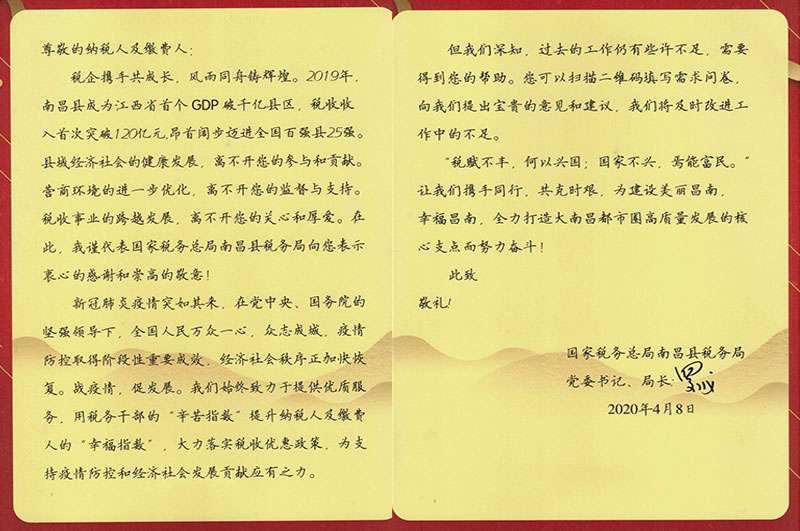 尊敬的纳税人及缴费人：
税企携手共成长，风雨同舟铸辉煌。2019年，
南昌县成为江西省首个GDP破千亿县区，税收收
入首次突破120亿元,昂首阔步迈进全国百强县25强。
县域经济社会的健康发展，离不开您的参与和贡献。
营商环境的进一步优化，离不开您的监督与支持。
税收事业的跨越发展，离不开您的关心和厚爱。在
此，我谨代表国家税务总局南昌县税务局向您表示
衷心的感谢和崇高的敬意！
新冠肺炎疫情突如其来，在党中央、国务院的
坚强领导下，全国人民万众一心，众志成城，疫情
防控取得阶段性重要成效，经济社会秩序正加快恢
复。战疫情，促发展。我们始终致力于提供优质服
务，用税务干部的“辛苦指数”提升纳税人及缴费
人的“幸福指数”，大力落实税收优惠政策，为支
持疫情防控和经济社会发展贡献应有之力。
但我们深知，过去的工作仍有些许不足，需要
得到您的帮助。您可以扫描二维码填写需求问卷，
向我们提出宝贵的意见和建议，我们将及时改进工
作中的不足。
“税赋不丰，何以兴国；国家不兴，焉能富民。”
让我们携手同行，共克时艰，为建设美丽昌南，
幸福昌南，全力打造大南昌都市圈高质量发展的核
心支点而努力奋斗！
此致
敬礼！
国家税务总局南昌县税务局
党委书记、局长：
2020年4月8日